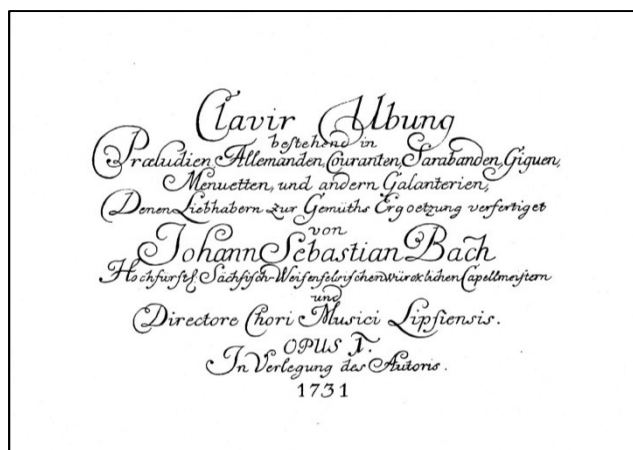 Clavir Ubung
bestehend in
Præludien, Allemanden, Couranten, Sarabanden, Giguen,
Menuetten, und andern Galanterien,
Denen Liebhabern zur Gemüths Ergoetzung verfertiget
von
Johann Sebastian Bach
Hochfürstl. Sächsisch-Weisenfelsischen würcklichen Capellmeistern
und
Directore Chori Musici Lipsiensis.
OPUS I.
In Verlegung des Autoris.
1731